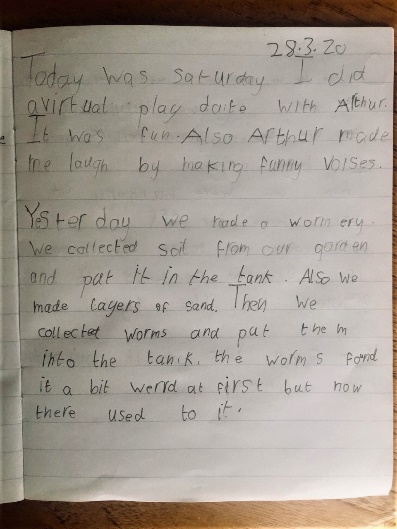 28.3.20
Today was saturday I did
a virtual play daite with Arthur.
It was fun. Also Arthur made
me laugh by making funny voises.
Yesterday we made a wormery.
We collected soil from our garden
and put it in the tank. Also we
made layers of sand. Then we
collected worms and put them
into the tank. the worms found
it a bit werrd at first but now
there used to it.